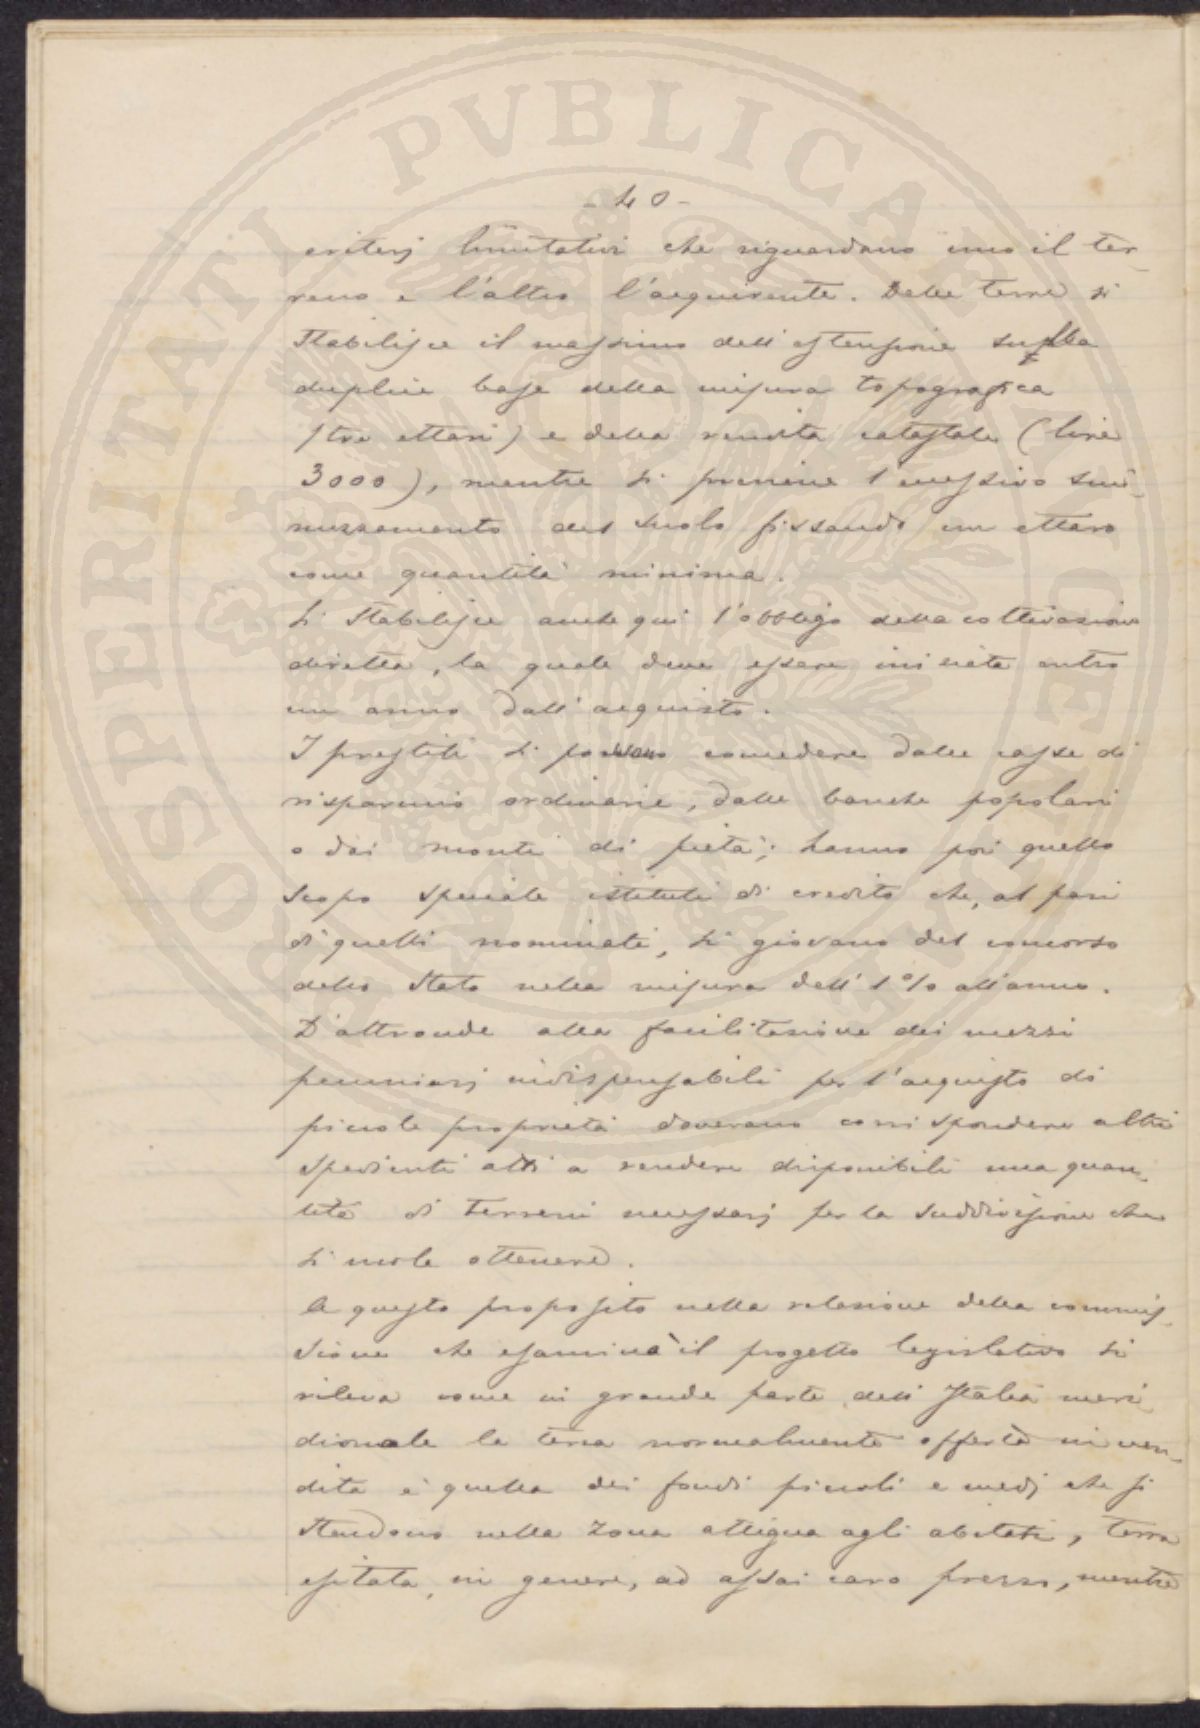 - 40 -
criterj limitativi che riguardano uno il ter-
reno e l'altro l'acquirente. Delle terre si
stabilisce il massimo dell'estensione sulla
duplice base della misura topografica
(tre ettari) e della rendita catastale (lire
3000), mentre si previene l'eccessivo smi-
nuzzamento del suolo fissando un ettaro
come quantità minima.
Si stabilisce anche qui l'obbligo della coltivazione
diretta, la quale deve essere iniziata entro
un anno dall'acquisto.
I prestiti si possono concedere dalle casse di
risparmio ordinarie, dalle banche popolari
o dai monti di pietà; hanno poi quello
scopo speciale istituti di credito che, al pari
di quelli nominati, si giovano del concorso
dello Stato nella misura dell'1% all'anno.
D'altronde alla facilitazione dei mezzi
pecuniarj indispensabili per l'acquisto di
piccole proprietà dovevano corrispondere altri
spedienti atti a rendere disponibili una quan-
tità di terreni necessarj per la suddivisione che
si vuole ottenere.
A questo proposito nella relazione della commis-
sione che esaminò il progetto legislativo si
rileva come in grande parte dell'Italia meri-
dionale la terra normalmente offerta in ven-
dita è quella dei fondi piccoli e medj che si
stendono nella zona attigua agli abitati, terra
esitata, in genere, ad assai caro prezzo, mentre
PROSPERITATI PVBLICAE